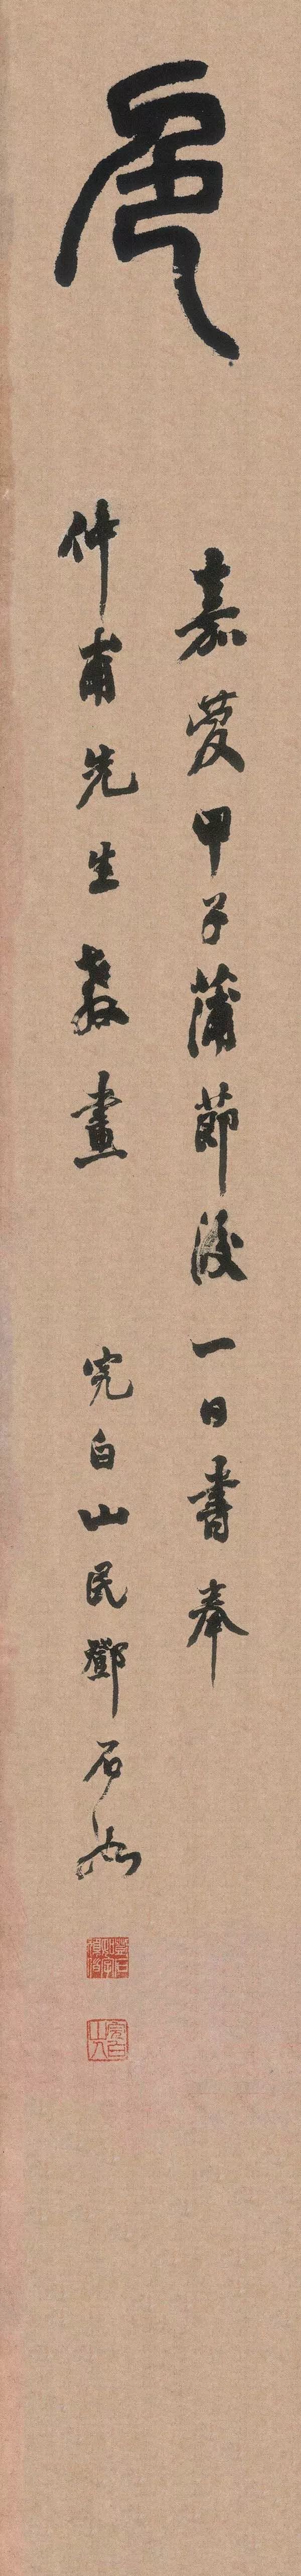 色
嘉慶甲子蒲節後一日書奉
仲甫先生教畫
完白山民鄧石如
鄧石如字頑伯
完白山人